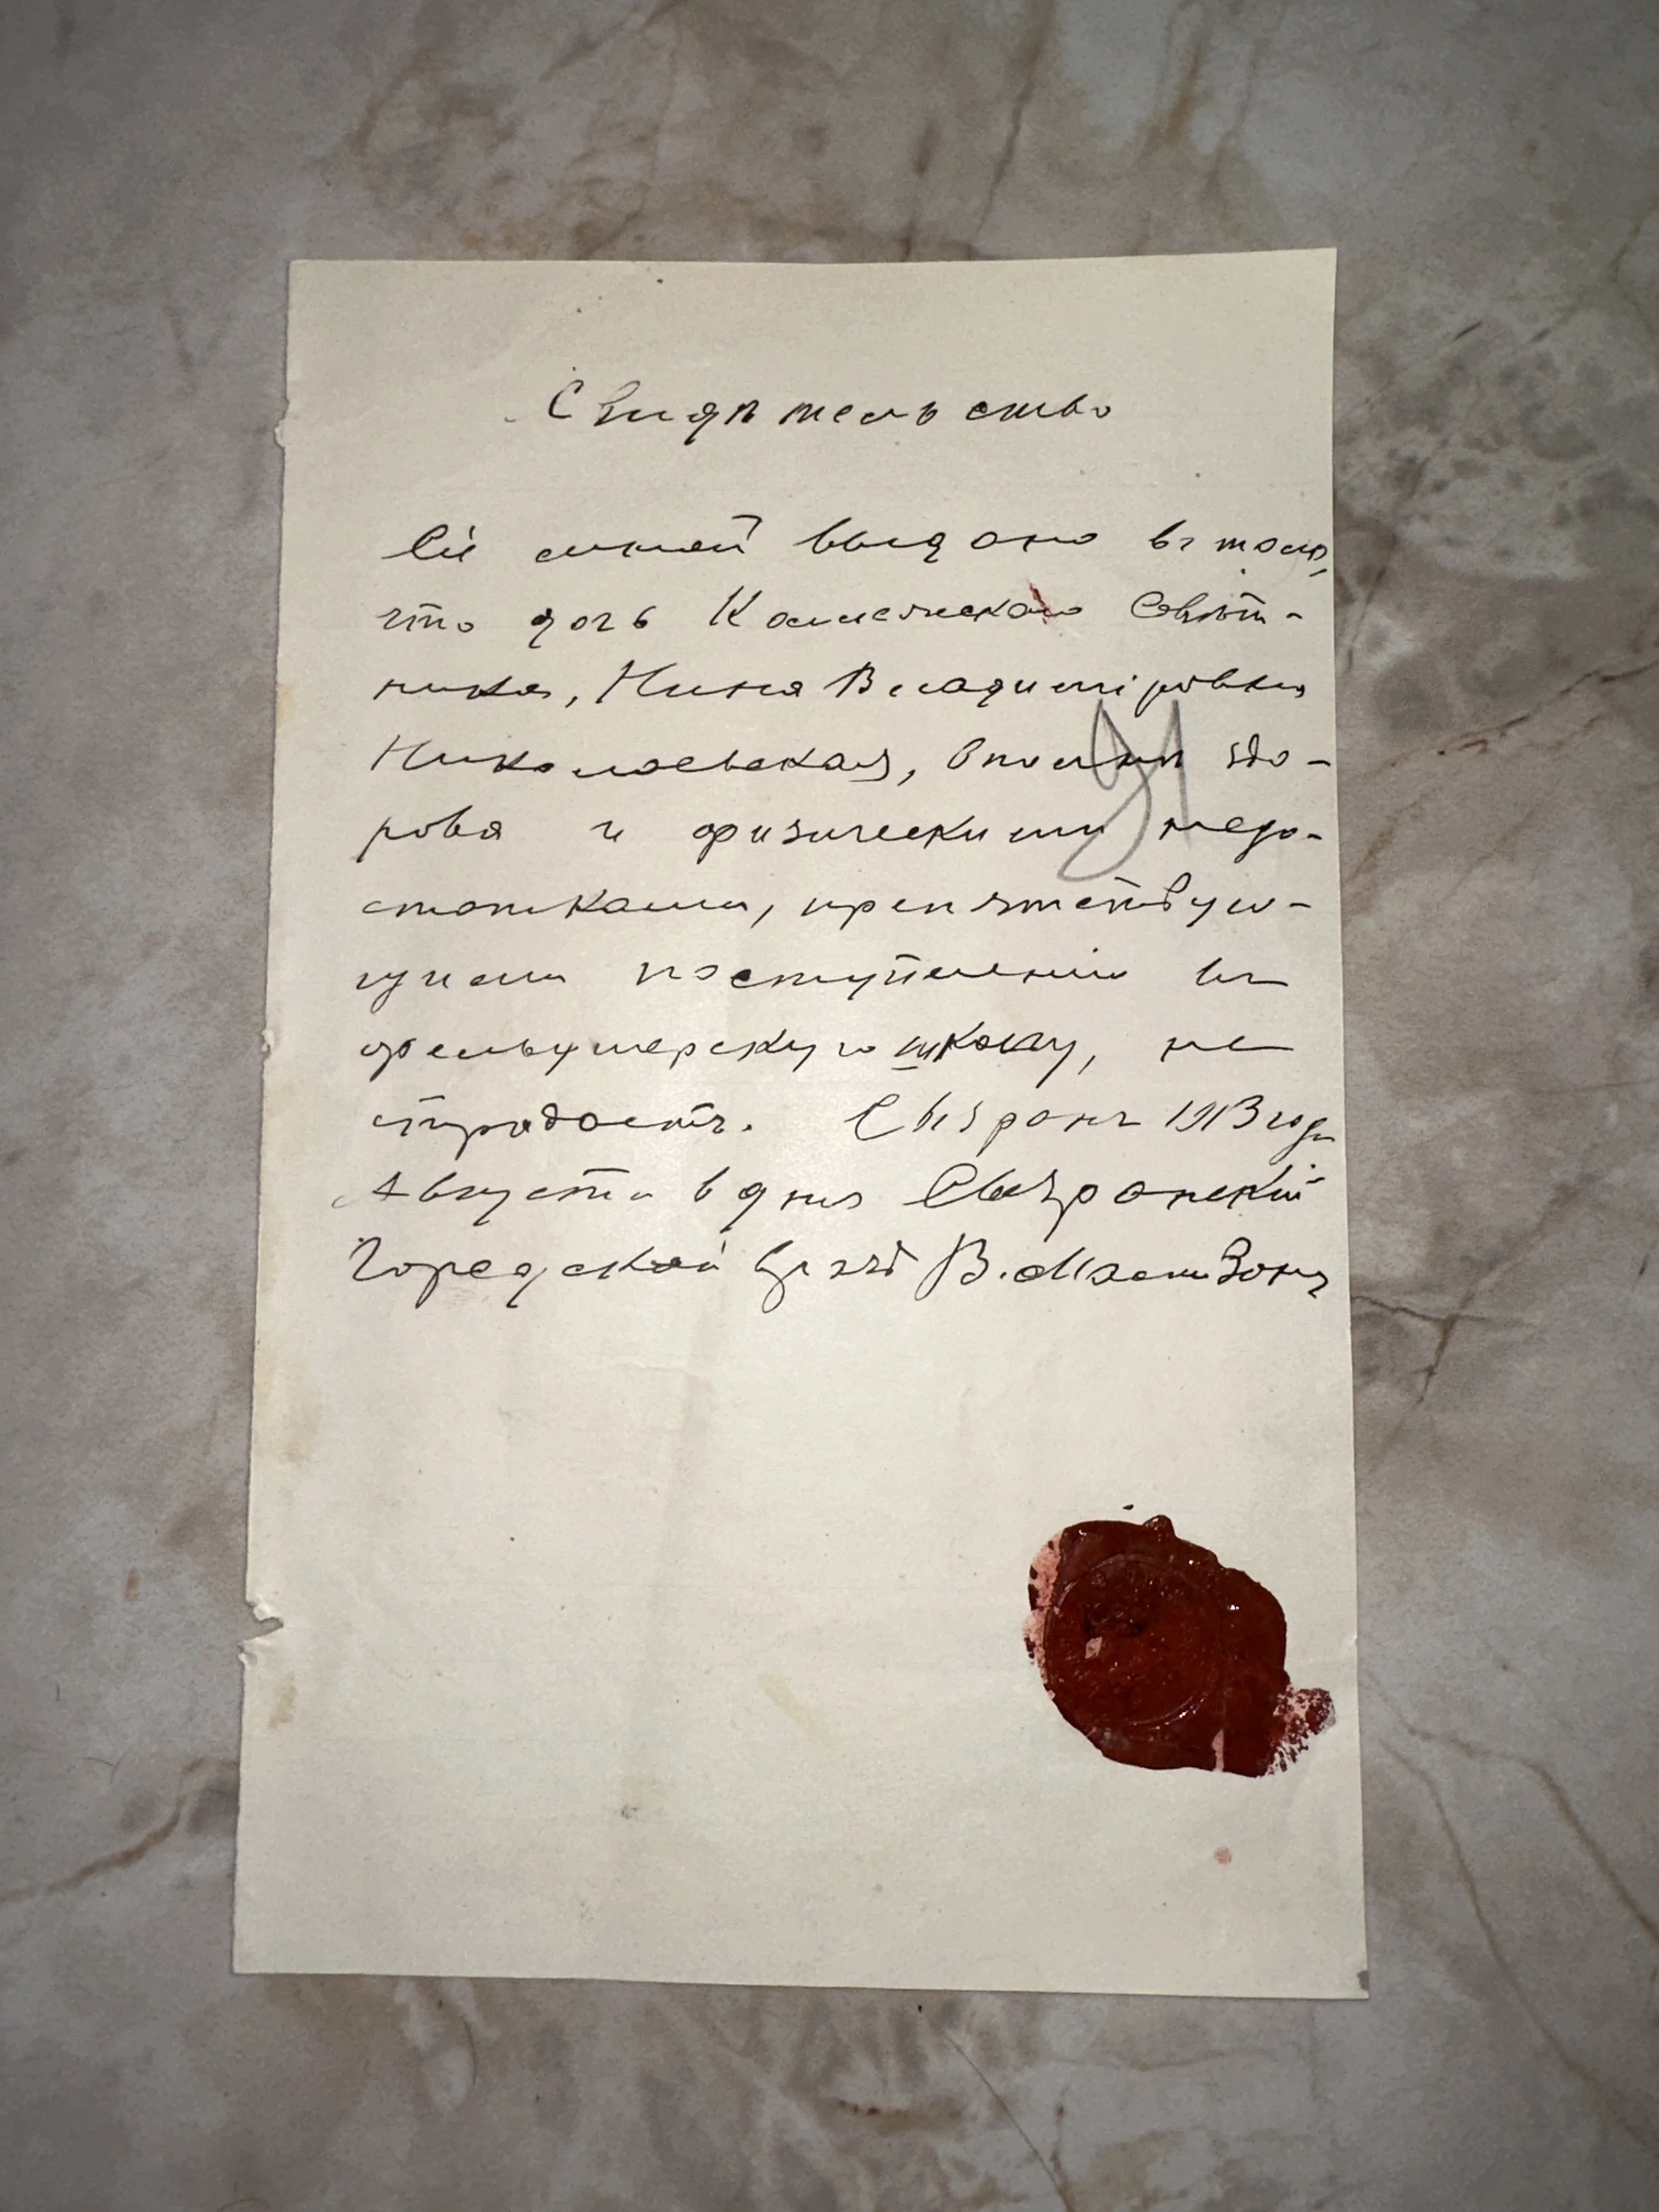 Свидѣтельство
Сіе мной выдано въ томъ,
что дочь Коллежскаго Совѣт-
ника, Нина Владиміровна
Николаевская, вполнѣ здо-
рова и физическими недо-
статками, препятствую-
щими поступленію въ
фельдшерскую школу, не
страдаетъ. Сызрань 1913 года
Августа 6 дня Сызранскій
Городской врачъ В.